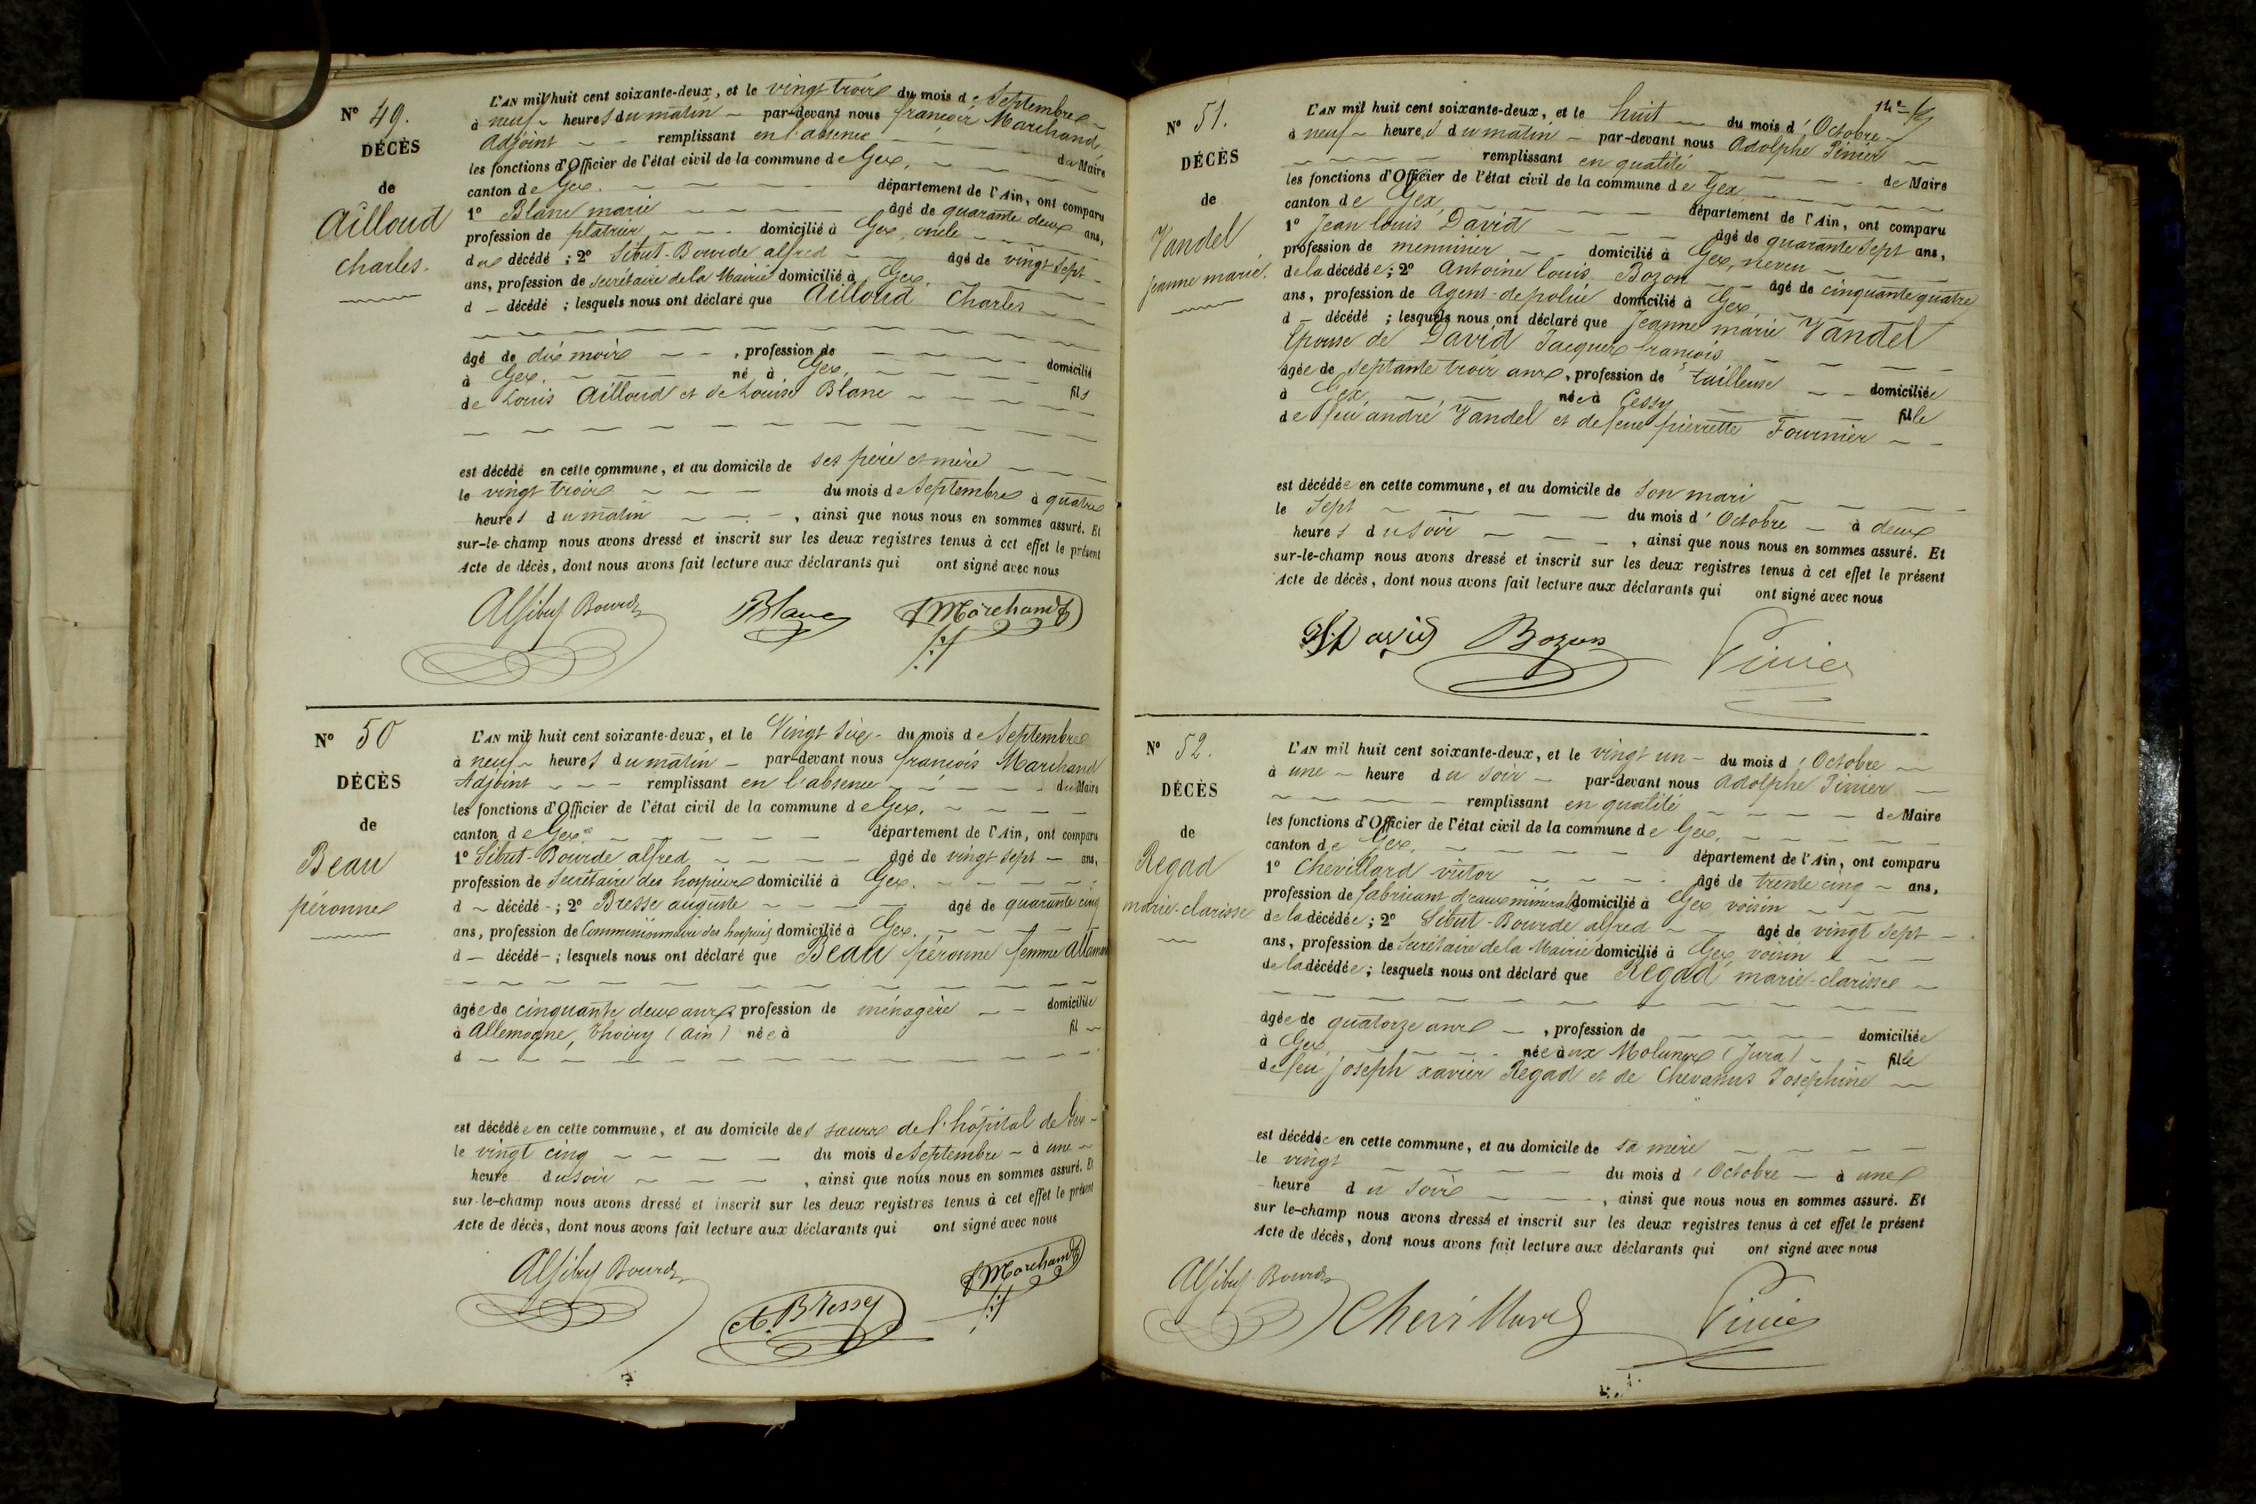 N° 49.
DÉCÈS
de
Ailloud
Charles.
L'AN mil huit cent soixante-deux, et le vingt trois du mois de Septembre
à neuf heures du matin par-devant nous françois Marchand,
Adjoint remplissant en l'absence du Maire
les fonctions d'Officier de l'état civil de la commune de Gex,
canton de Gex. département de l'Ain, ont comparu
1° Blanc marie âgé de quarante deux ans,
profession de platrier domicilié à Gex, oncle
du décédé ; 2° Sibut-Bourde alfred âgé de vingt sept
ans, profession de secrétaire de la Mairie domicilié à Gex.
d décédé ; lesquels nous ont déclaré que Ailloud Charles
âgé de dix mois , profession de domicilié
à Gex. né à Gex, fils
de Louis Ailloud et de Louise Blanc
est décédé en cette commune, et au domicile de ses père et mère
le vingt trois du mois de Septembre à quatre
heures du matin , ainsi que nous nous en sommes assuré. Et
sur-le-champ nous avons dressé et inscrit sur les deux registres tenus à cet effet le présent
Acte de décès, dont nous avons fait lecture aux déclarants qui ont signé avec nous
Alf Sibut Bourde Blanc f Marchand
N° 50
DÉCÈS
de
Beau
péronne
L'AN mil huit cent soixante-deux, et le Vingt Six du mois de Septembre
à neuf heures du matin par-devant nous françois Marchand
Adjoint remplissant en l'absence du Maire
les fonctions d'Officier de l'état civil de la commune de Gex.
canton de Gex. département de l'Ain, ont comparu
1° Sibut-Bourde alfred âgé de vingt sept ans,
profession de Secrétaire des hospices domicilié à Gex.
d décédé ; 2° Bresse auguste âgé de quarante cinq
ans, profession de Commissionnaire des hospices domicilié à Gex.
d décédé ; lesquels nous ont déclaré que Beau péronne femme Alleman
âgée de cinquante deux ans profession de ménagère domiciliée
à Allemogne, Thoiry (Ain) née à fil
d
est décédée en cette commune, et au domicile des sœurs de l'hôpital de Gex
le vingt cinq du mois de Septembre à une
heure du soir , ainsi que nous nous en sommes assuré. Et
sur-le-champ nous avons dressé et inscrit sur les deux registres tenus à cet effet le présent
Acte de décès, dont nous avons fait lecture aux déclarants qui ont signé avec nous
Alf Sibut Bourde A. Bresse f Marchand
N° 51.
DÉCÈS
de
Vandel
Jeanne marie.
L'AN mil huit cent soixante-deux, et le huit du mois d'Octobre
à neuf heures du matin par-devant nous Adolphe Pinier
remplissant en qualité de Maire
les fonctions d'Officier de l'état civil de la commune de Gex
canton de Gex département de l'Ain, ont comparu
1° Jean louis David âgé de quarante sept ans,
profession de menuisier domicilié à Gex, neveu
de la décédée ; 2° Antoine louis Bozon âgé de cinquante quatre
ans, profession de Agent-de police domicilié à Gex,
d décédé ; lesquels nous ont déclaré que Jeanne marie Vandel
Epouse de David Jacques françois
âgée de septante trois ans, profession de tailleuse domiciliée
à Gex, née à Cessy fille
de feu andré Vandel et de feue pierrette Fournier
est décédée en cette commune, et au domicile de son mari
le Sept du mois d'Octobre à deux
heures du soir , ainsi que nous nous en sommes assuré. Et
sur-le-champ nous avons dressé et inscrit sur les deux registres tenus à cet effet le présent
Acte de décès, dont nous avons fait lecture aux déclarants qui ont signé avec nous
David Bozon Pinier
N° 52.
DÉCÈS
de
Regad
marie-clarisse
L'AN mil huit cent soixante-deux, et le vingt un du mois d'Octobre
à une heure du soir par-devant nous Adolphe Pinier
remplissant en qualité de Maire
les fonctions d'Officier de l'état civil de la commune de Gex,
canton de Gex, département de l'Ain, ont comparu
1° Chevillard victor âgé de trente cinq ans,
profession de fabricant d'eaux minérales domicilié à Gex voisin
de la décédée ; 2° Sibut-Bourde alfred âgé de vingt sept
ans, profession de Secrétaire de la Mairie domicilié à Gex, voisin
de la décédée ; lesquels nous ont déclaré que Regad marie-clarisse
âgée de quatorze ans , profession de domiciliée
à Gex née aux Molunes (Jura) fille
de feu joseph xavier Regad et de Chevassus Josephine
est décédée en cette commune, et au domicile de sa mère
le vingt du mois d'Octobre à une
heure du soir , ainsi que nous nous en sommes assuré. Et
sur le-champ nous avons dressé et inscrit sur les deux registres tenus à cet effet le présent
Acte de décès, dont nous avons fait lecture aux déclarants qui ont signé avec nous
Alf Sibut-Bourde Chevillard Pinier